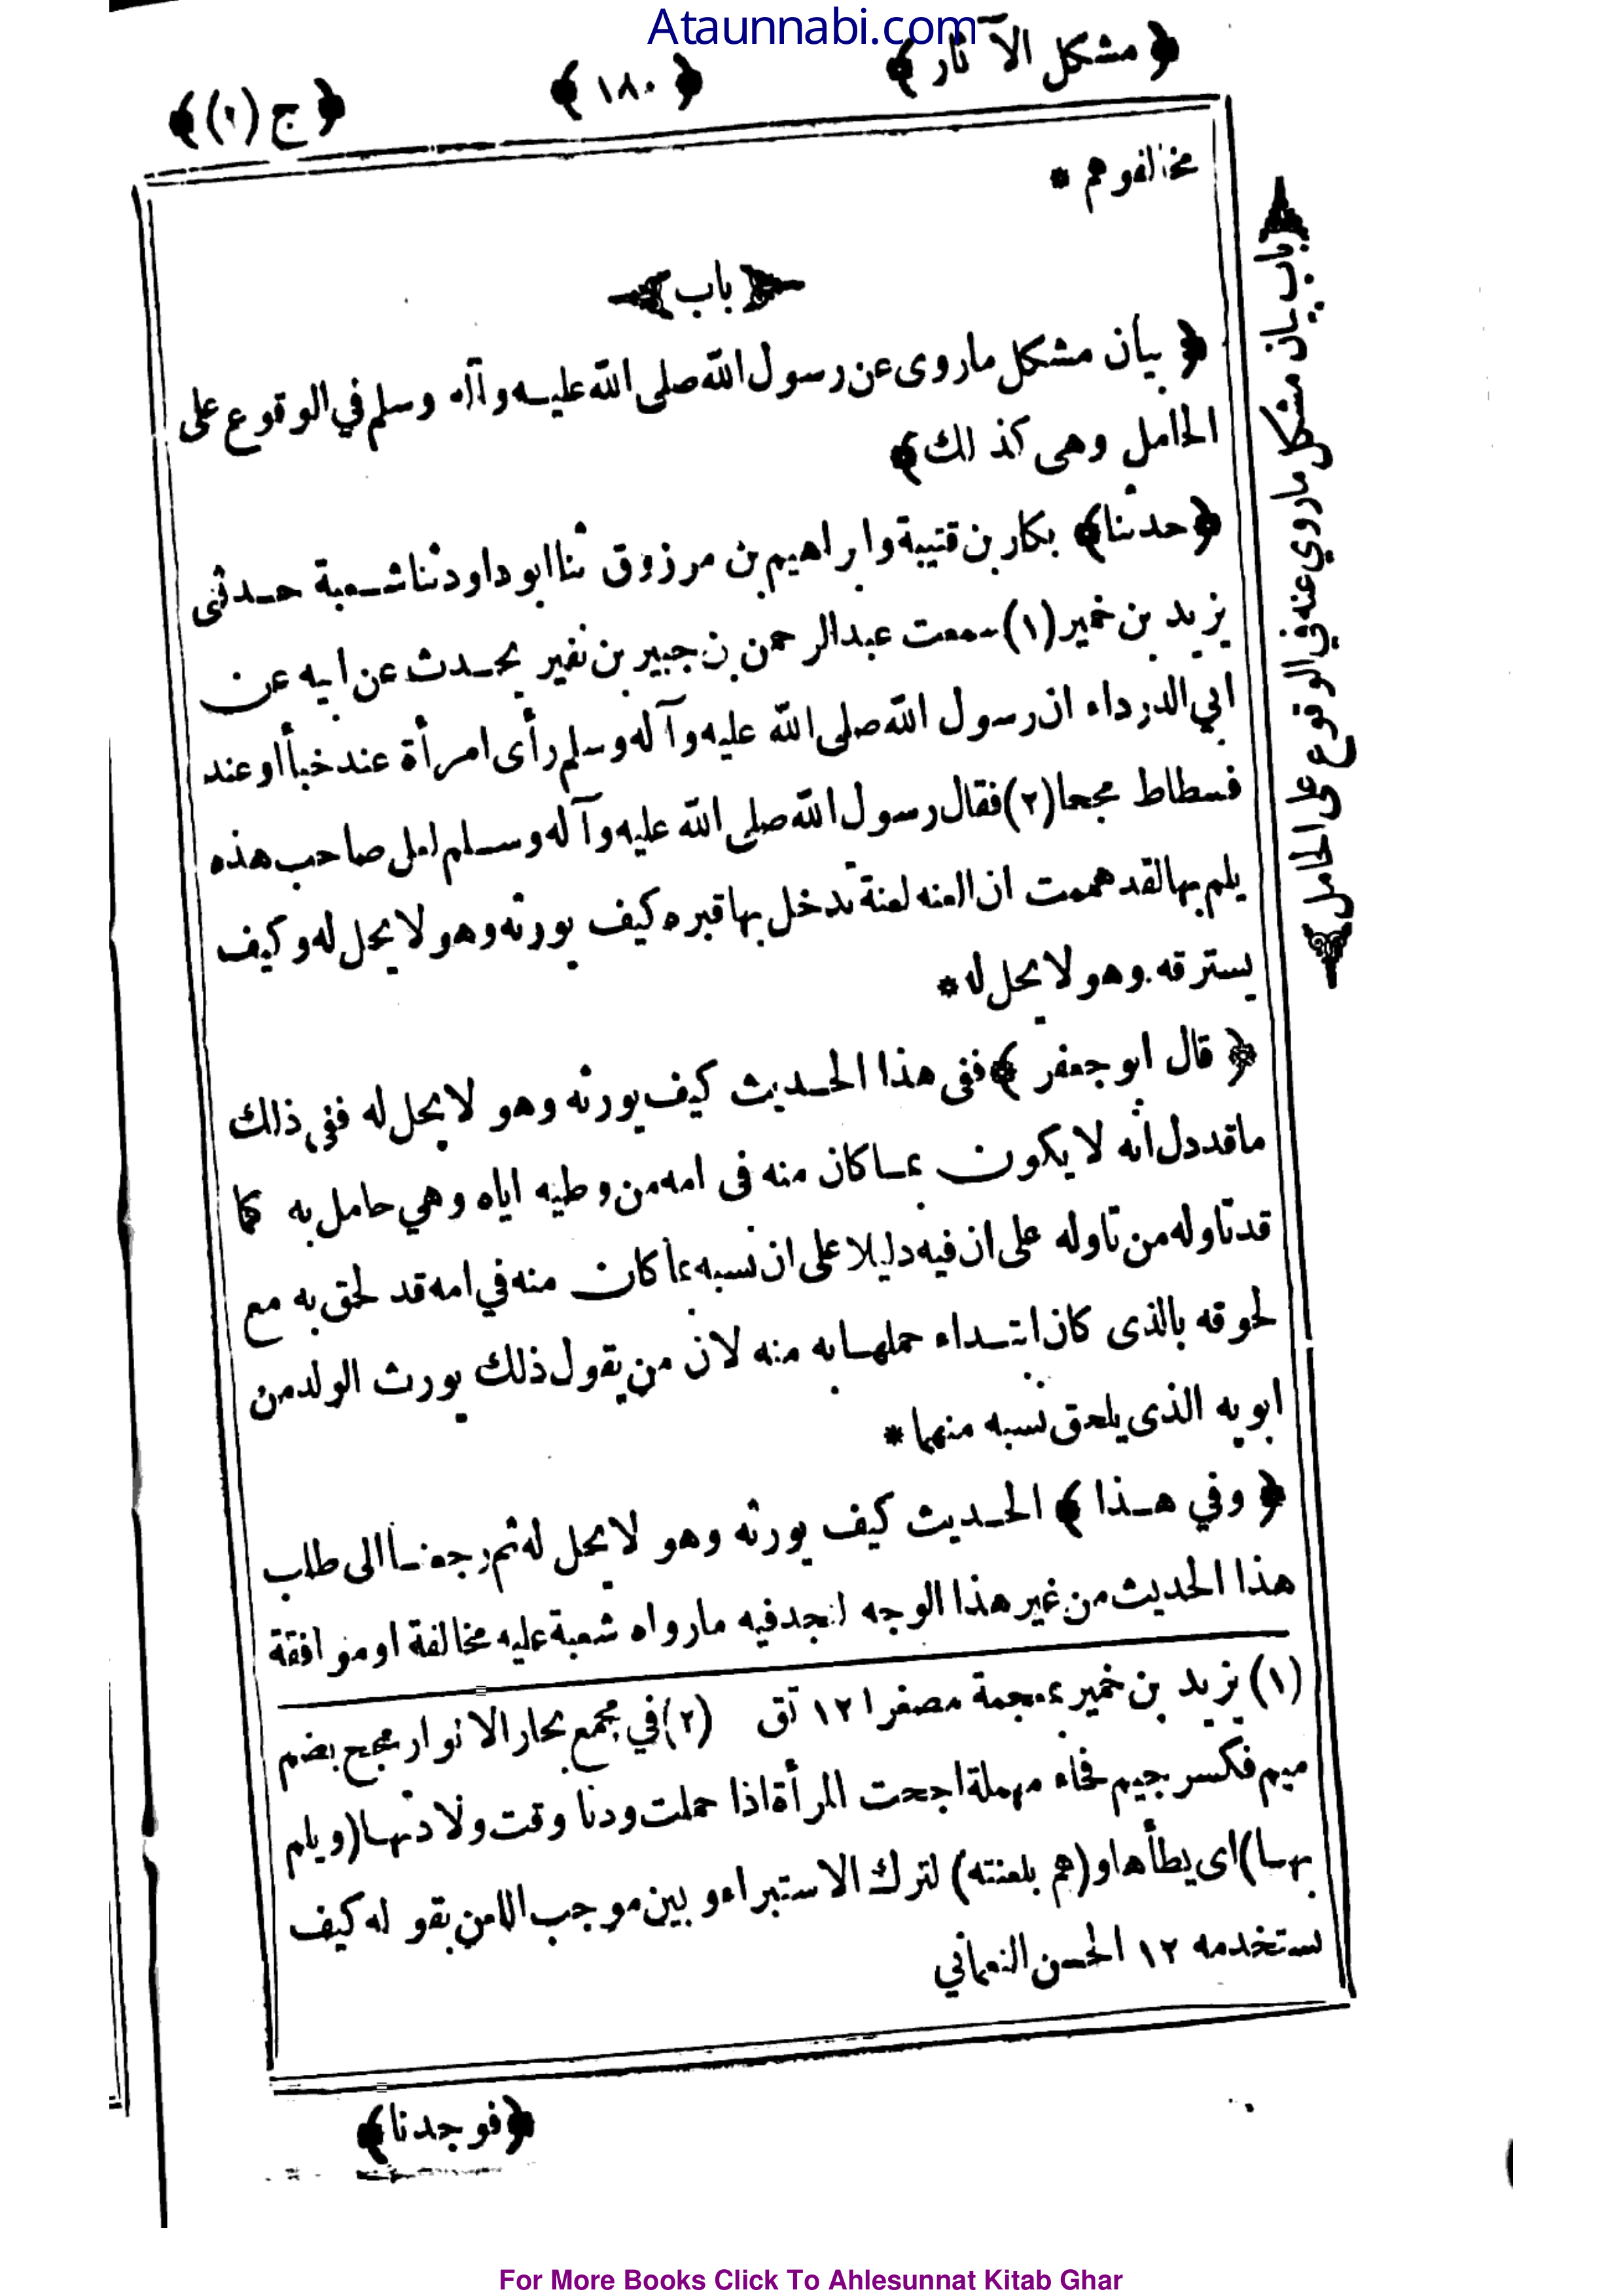 Ataunnabi.com
﴿ مشكل الآثار ﴾ ﴿ ١٨٠ ﴾ ﴿ ج (٢) ﴾
مخالفوهم *
﴿ باب ﴾
﴿ بيان مشكل ماروى عن رسول الله صلى الله عليه وآله وسلم في الوقوع على
الحامل وهى كذلك ﴾
﴿ حدثنا ﴾ بكار بن قتيبة وابراهيم بن مرزوق ثنا ابو داود ثنا شعبة حدثنى
يزيد بن خمير (١) سمعت عبد الرحمن بن جبير بن نفير يحدث عن ابيه عن
ابي الدرداء ان رسول الله صلى الله عليه وآله وسلم رأى امرأة عند خبأ او عند
فسطاط مجحا (٢) فقال رسول الله صلى الله عليه وآله وسلم لعل صاحب هذه
يلم بها لقد هممت ان العنه لعنة تدخل بها قبره كيف يورثه وهو لا يحل له وكيف
يسترقه وهو لا يحل له *
﴿ قال ابو جعفر ﴾ ففى هذا الحديث كيف يورثه وهو لا يحل له ففى ذلك
ما قد دل انه لا يكون بما كان منه فى امه من وطيه اياه وهي حامل به كما
قد تاوله من تاوله على ان فيه دليلا على ان نسبه بما كان منه في امه قد لحق به مع
لحوقه بالذى كان ابتداء حملها به منه لان من يقول ذلك يورث الولد من
ابويه الذى يلحق نسبه منهما *
﴿ وفي هذا ﴾ الحديث كيف يورثه وهو لا يحل له ثم رجعنا الى طلب
هذا الحديث من غير هذا الوجه لنجد فيه ما رواه شعبة عليه مخالفة او موافقة
(١) يزيد بن خمير بمعجمة مصغرا ١٢ تق (٢) في مجمع بحار الانوار مجح بضم
ميم فكسر جيم فحاء مهملة اجحت المرأة اذا حملت ودنا وقت ولادتها (ويلم
بها) اى يطأها و (هم بلعنته) لترك الاستبراء و بين موجب اللعن بقوله كيف
يستخدمه ١٢ الحسن النعماني
﴿ فوجدنا ﴾
﴿ باب بيان مشكل ماروي عنه في الوقوع على الحامل ﴾
For More Books Click To Ahlesunnat Kitab Ghar